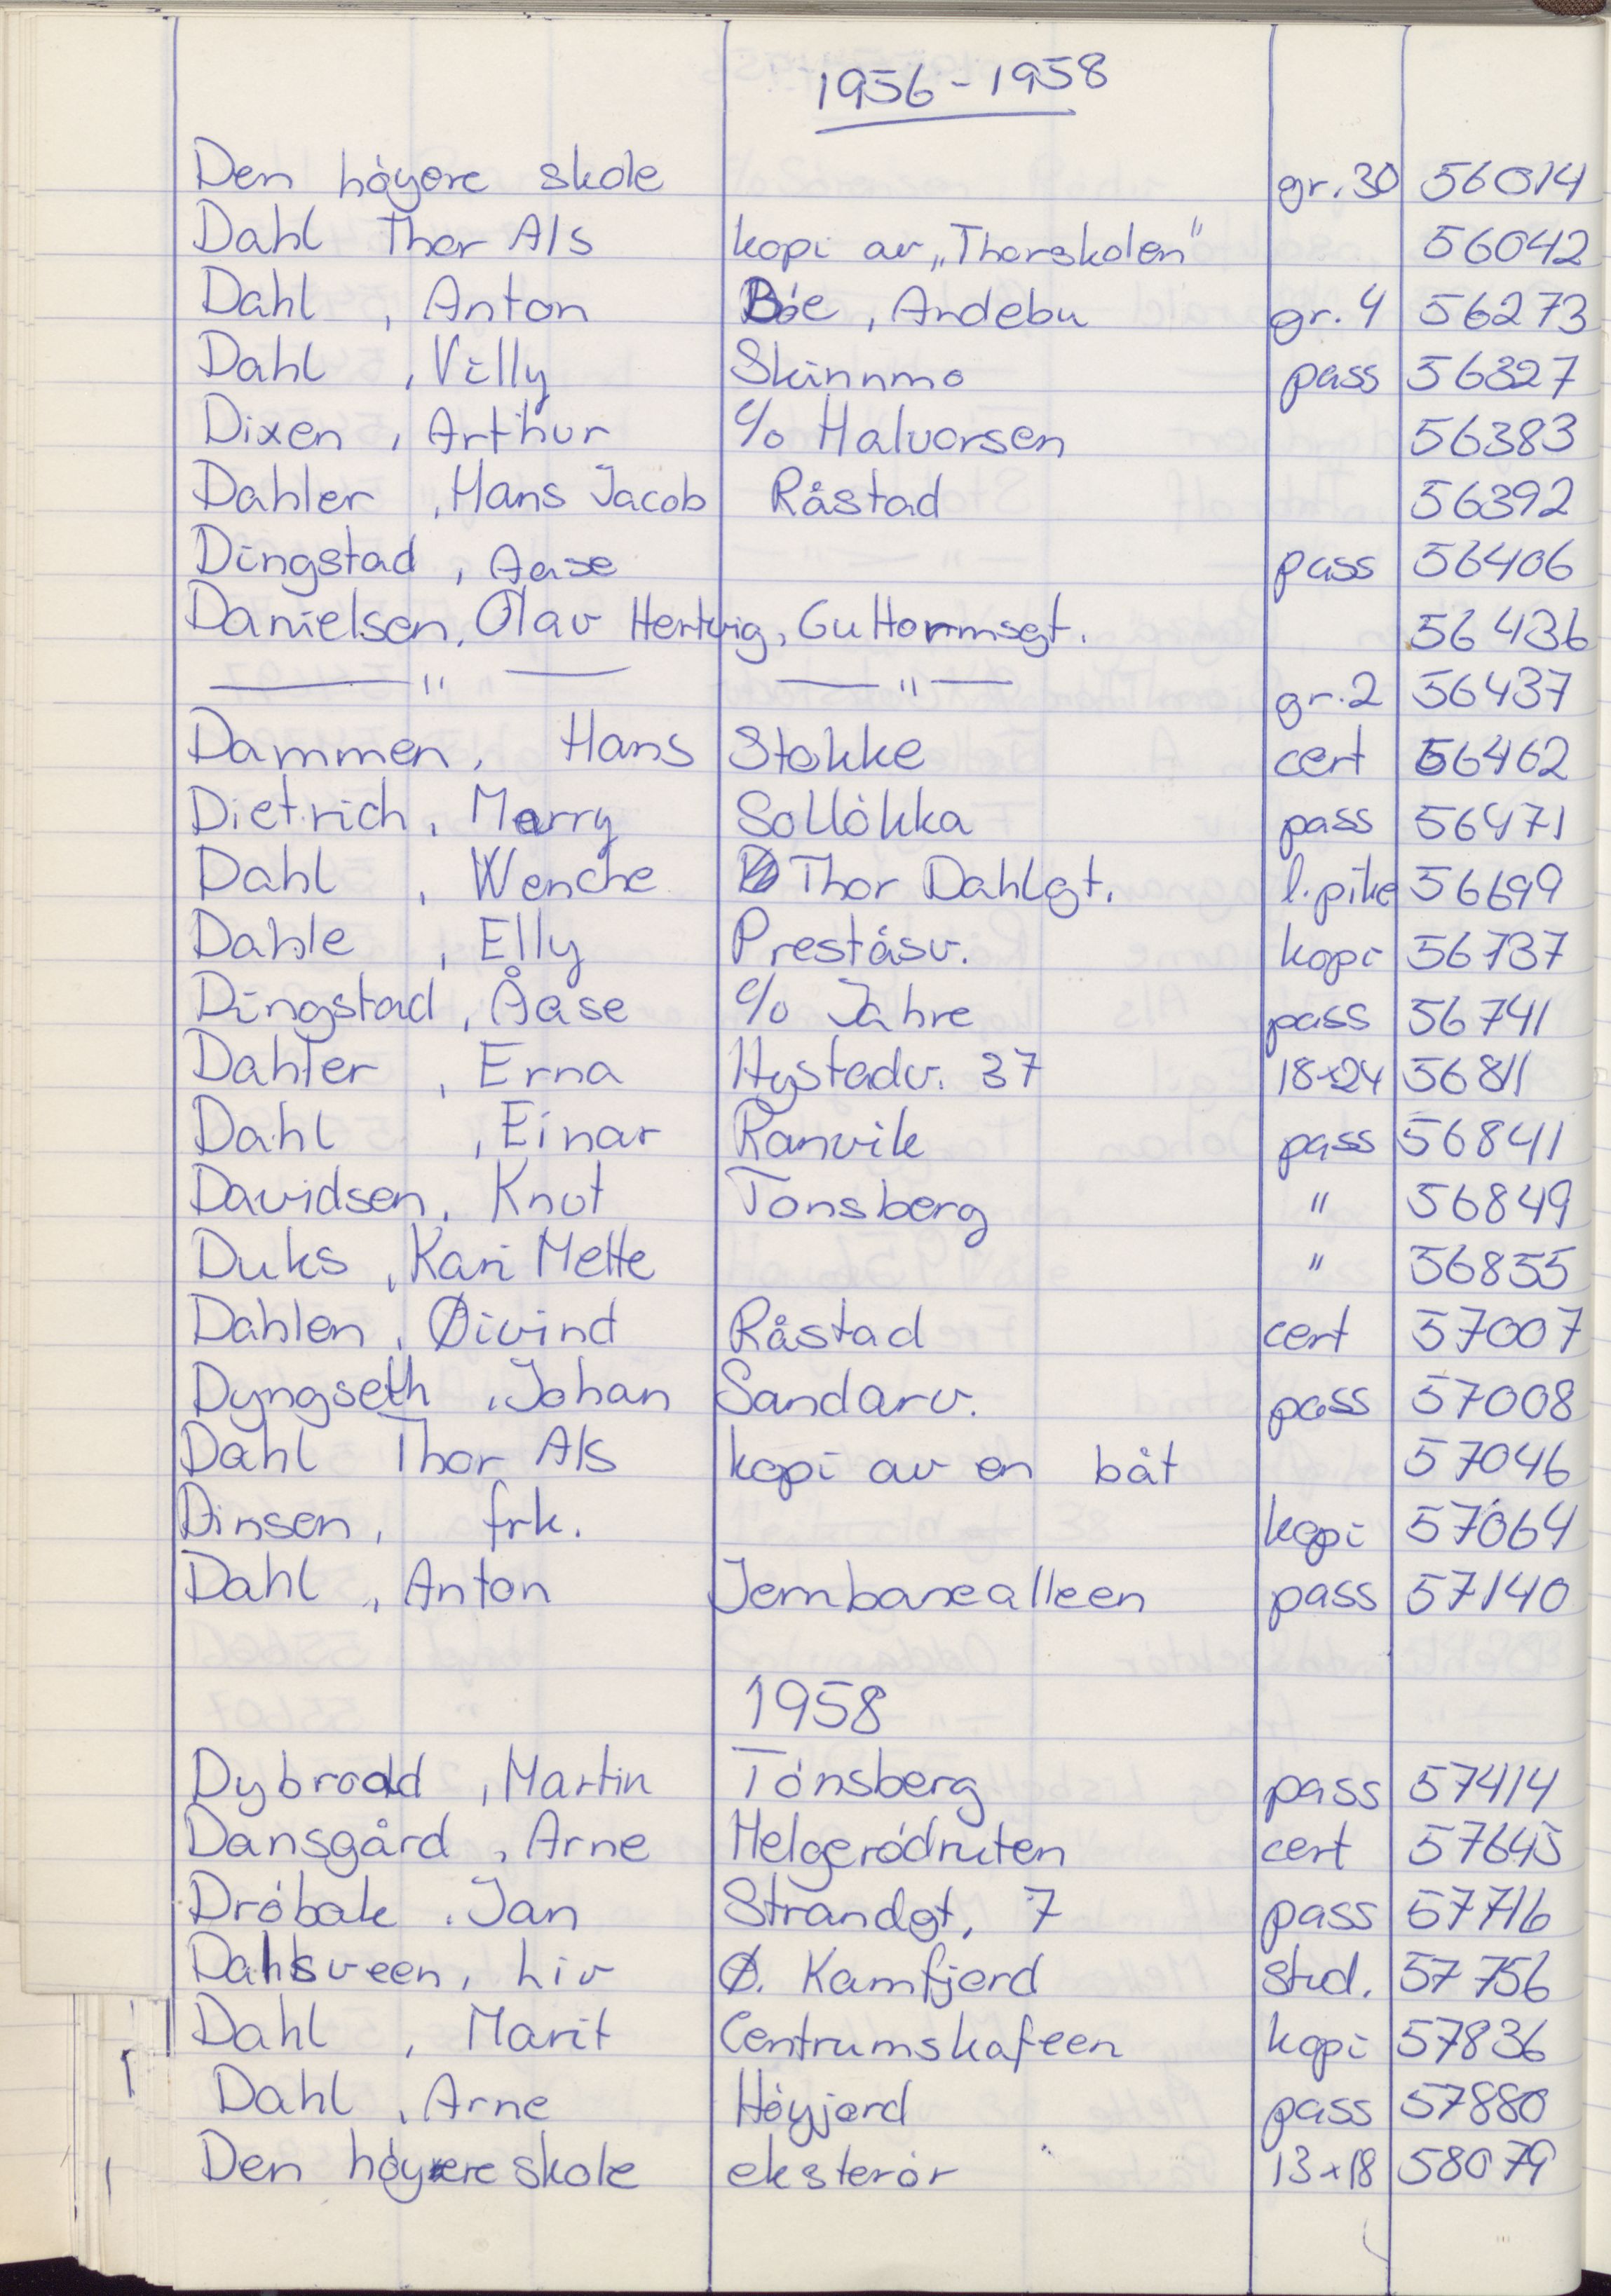 1956-1958
Den höyere skole gr. 30 56014
Dahl Thor A/S kopi av „Thorskolen" 56042
Dahl , Anton Böe , Andebu gr. 4 56273
Dahl , Villy Skinnmo pass 56327
Dixen , Arthur c/o Halvorsen 56383
Dahler , Hans Jacob Råstad 56392
Dingstad , Aase pass 56406
Danielsen, Olav Hertvig, Guttormsgt. 56436
— " — — " — gr. 2 56437
Dammen, Hans Stokke cert 56462
Dietrich, Marry Sollökka pass 56471
Dahl , Wenche Thor Dahlgt. l. pike 56699
Dahle , Elly Preståsv. kopi 56737
Dingstad , Åase c/o Jahre pass 56741
Dahler , Erna Hystadv. 37 18x24 56811
Dahl , Einar Ranvik pass 56841
Davidsen, Knut Tonsberg " 56849
Duks , Kari Mette " 56855
Dahlen , Øivind Råstad cert 57007
Dyngseth , Johan Sandarv. pass 57008
Dahl Thor A/S kopi av en båt 57046
Dinsen, frk. kopi 57064
Dahl , Anton Jernbanealleen pass 57140
1958
Dybrodd , Martin Tönsberg pass 57414
Dansgård , Arne Helgerödruten cert 57645
Dröbak , Jan Strandgt, 7 pass 57716
Dahlsveen, Liv Ø. Kamfjord stud. 57756
Dahl , Marit Centrumskafeen kopi 57836
Dahl , Arne Höyjord pass 57880
Den höyere skole eksteriör 13x18 58079